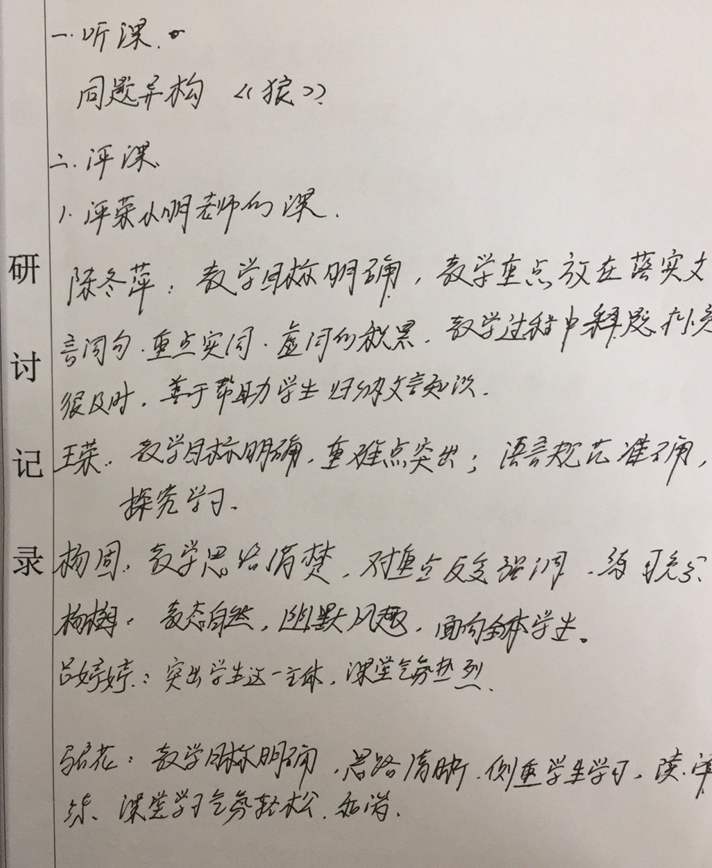 研讨记录
一.听课.
同题异构 《狼》
二.评课
1.评荣从明老师的课.
陈冬萍:教学目标明确,教学重点放在落实文
言词句.重点实词.虚词的积累.教学过程中释题
很及时.善于帮助学生归纳文言知识.
王荣:教学目标明确,重难点突出;语言规范准确,
探究学习.
杨周:教学思路清楚,对重点反复强调.练习充分
杨树:教态自然,幽默风趣,面向全体学生。
吕婷婷:突出学生这一主体,课堂气氛热烈.
花:教学目标明确,思路清晰.侧重学生学习,读.译
练.课堂学习气氛轻松.和谐.